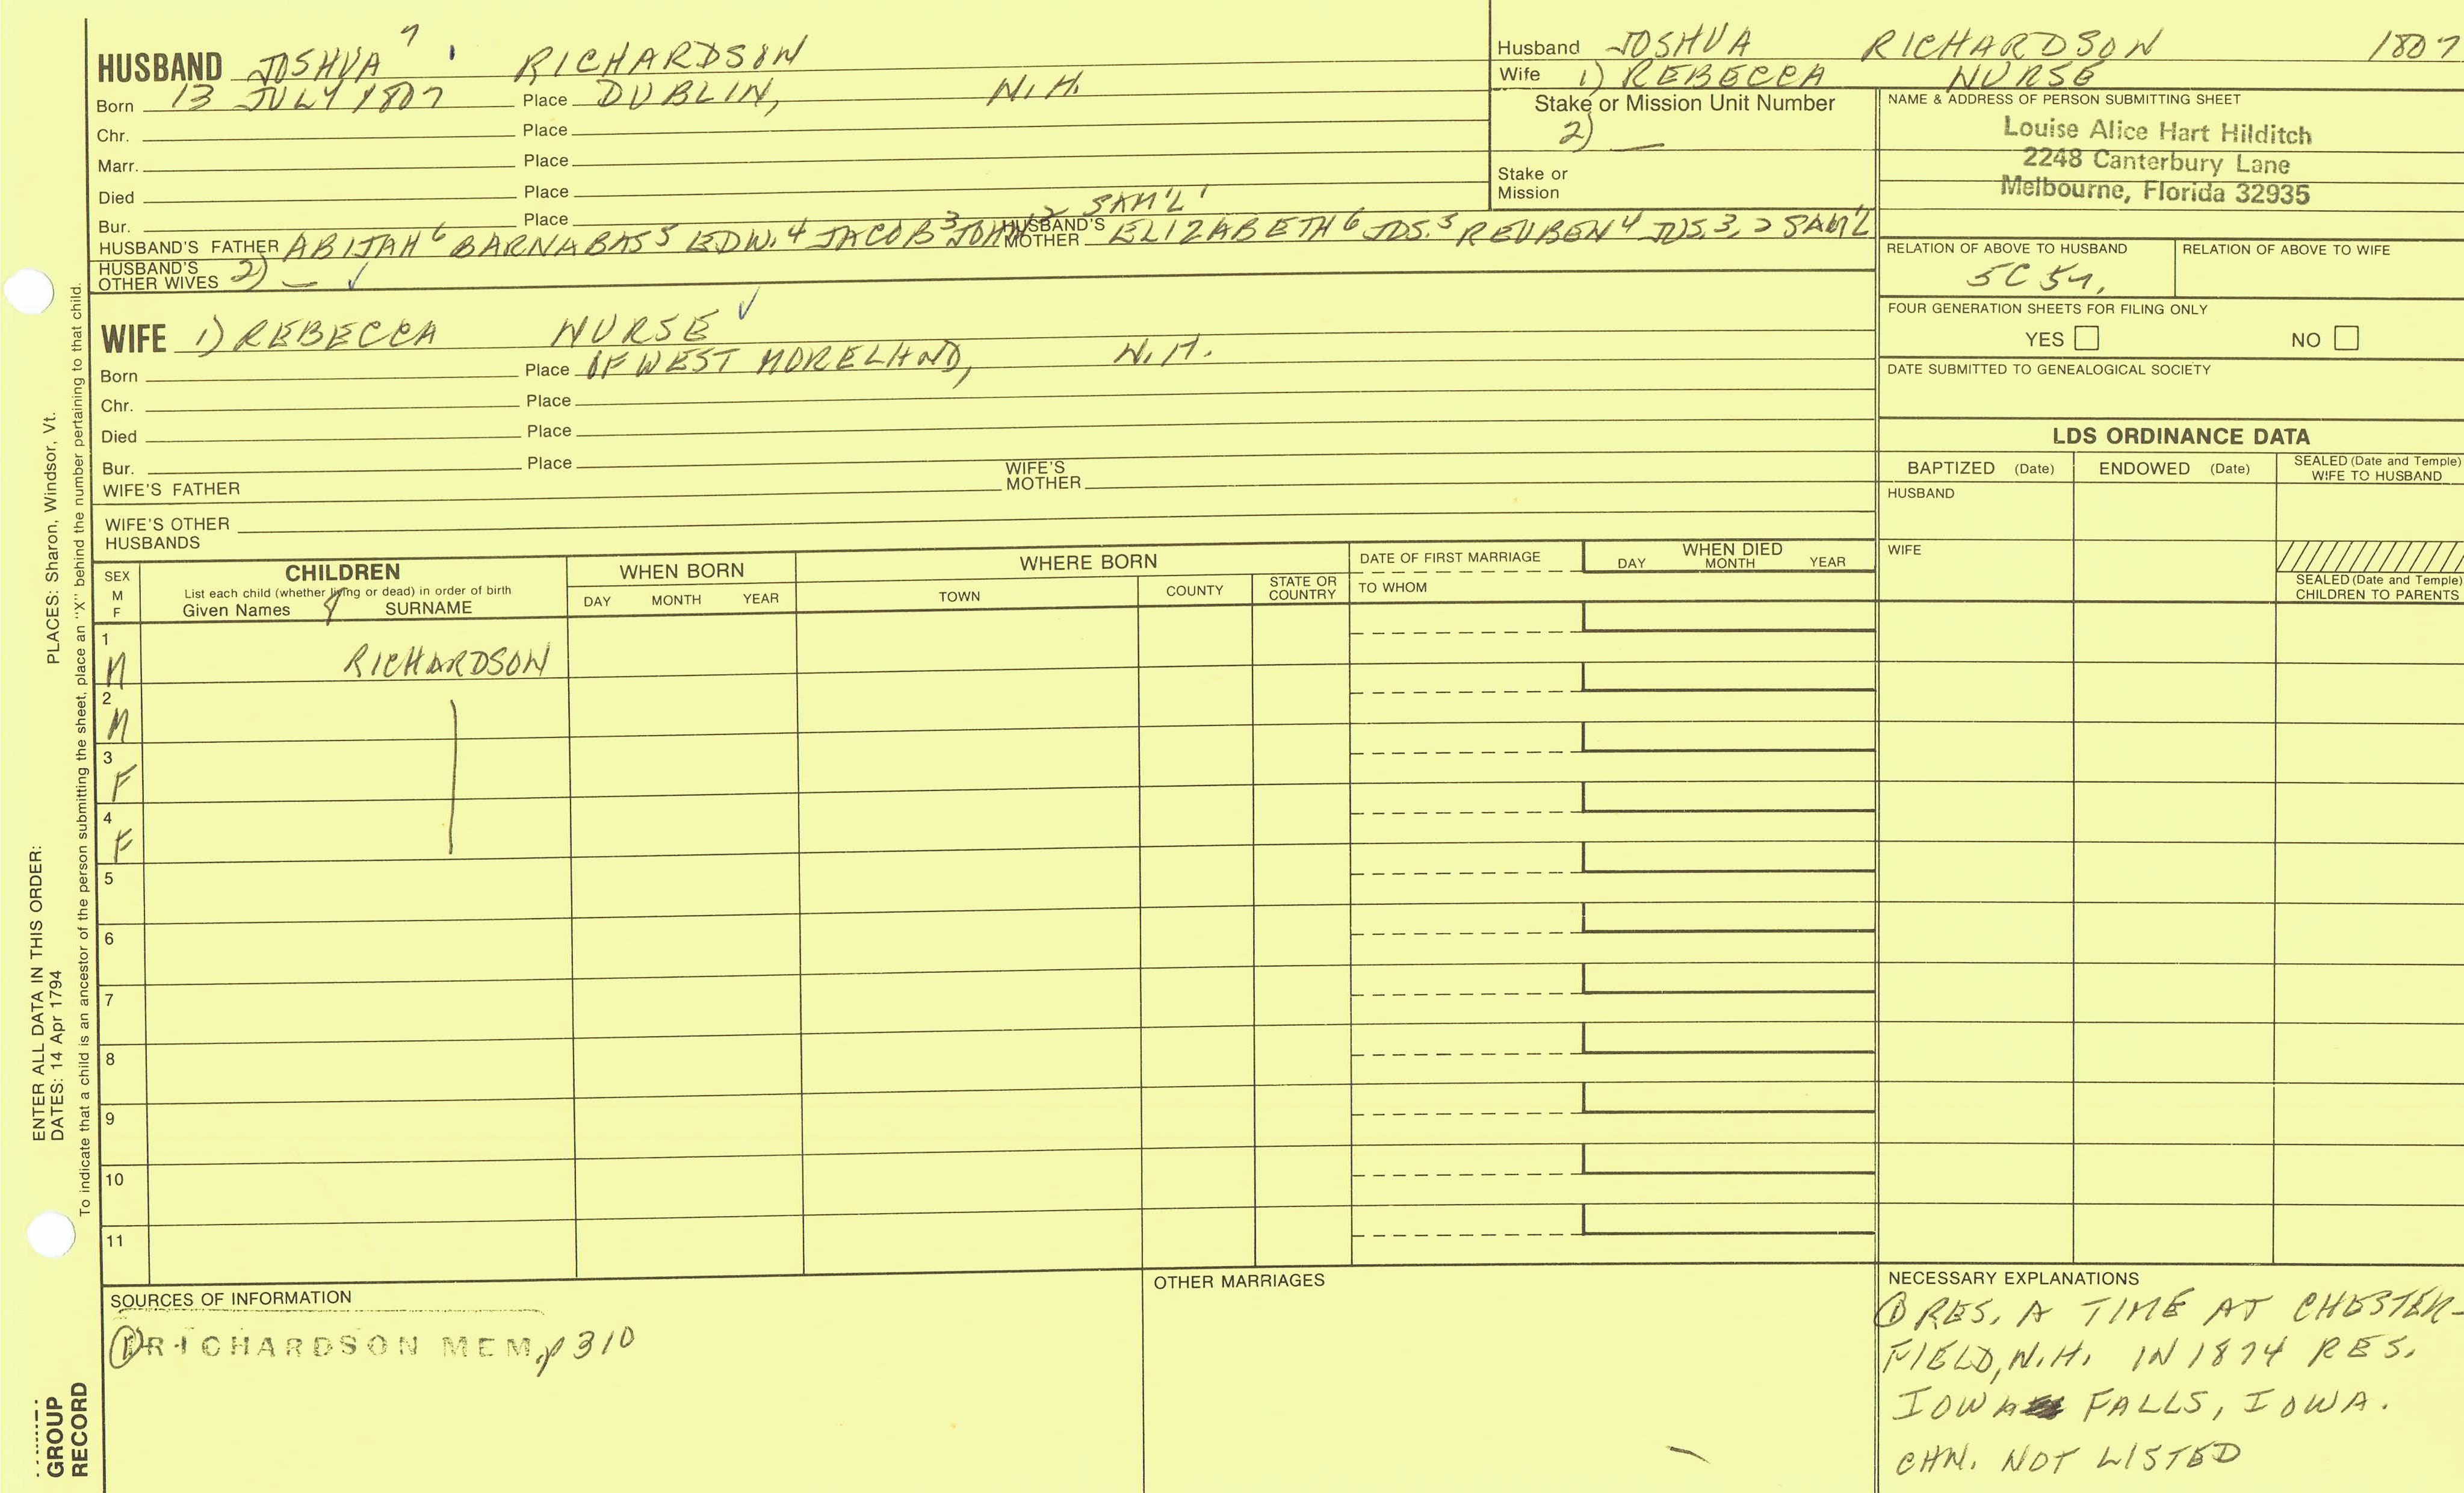 HUSBAND JOSHUA 7 RICHARDSON
Born 13 JULY 1807 Place DUBLIN, N.H.
Chr. Place
Marr. Place
Died Place
Bur. Place
HUSBAND'S FATHER ABIJAH 6 BARNABAS 5 EDW. 4 JACOB 3 JOHN 2 SAM'L 1 HUSBAND'S MOTHER ELIZABETH 6 JOS. 5 REUBEN 4 JOS. 3, 2 SAM'L
HUSBAND'S OTHER WIVES 2) —
WIFE 1) REBECCA NURSE
Born Place OF WEST MORELAND, N.H.
Chr. Place
Died Place
Bur. Place
WIFE'S FATHER WIFE'S MOTHER
WIFE'S OTHER HUSBANDS
Husband JOSHUA RICHARDSON 1807
Wife 1) REBECCA NURSE
Stake or Mission Unit Number
2) —
Stake or Mission
NAME & ADDRESS OF PERSON SUBMITTING SHEET
Louise Alice Hart Hilditch
2248 Canterbury Lane
Melbourne, Florida 32935
RELATION OF ABOVE TO HUSBAND RELATION OF ABOVE TO WIFE
5C 5r.
FOUR GENERATION SHEETS FOR FILING ONLY
YES NO
DATE SUBMITTED TO GENEALOGICAL SOCIETY
LDS ORDINANCE DATA
BAPTIZED (Date) ENDOWED (Date) SEALED (Date and Temple) WIFE TO HUSBAND
HUSBAND
WIFE
SEALED (Date and Temple) CHILDREN TO PARENTS
SEX M F
CHILDREN
List each child (whether living or dead) in order of birth
Given Names SURNAME
WHEN BORN
DAY MONTH YEAR
WHERE BORN
TOWN COUNTY STATE OR COUNTRY
DATE OF FIRST MARRIAGE
TO WHOM
WHEN DIED
DAY MONTH YEAR
1 M RICHARDSON
2 M
3 F
4 F
5
6
7
8
9
10
11
SOURCES OF INFORMATION
① RICHARDSON MEM. p 310
OTHER MARRIAGES
NECESSARY EXPLANATIONS
① RES. A TIME AT CHESTER-
FIELD, N.H. IN 1874 RES.
IOWA FALLS, IOWA.
CHN. NOT LISTED
ENTER ALL DATA IN THIS ORDER:
DATES: 14 Apr 1794
PLACES: Sharon, Windsor, Vt.
To indicate that a child is an ancestor of the person submitting the sheet, place an "X" behind the number pertaining to that child.
GROUP
RECORD